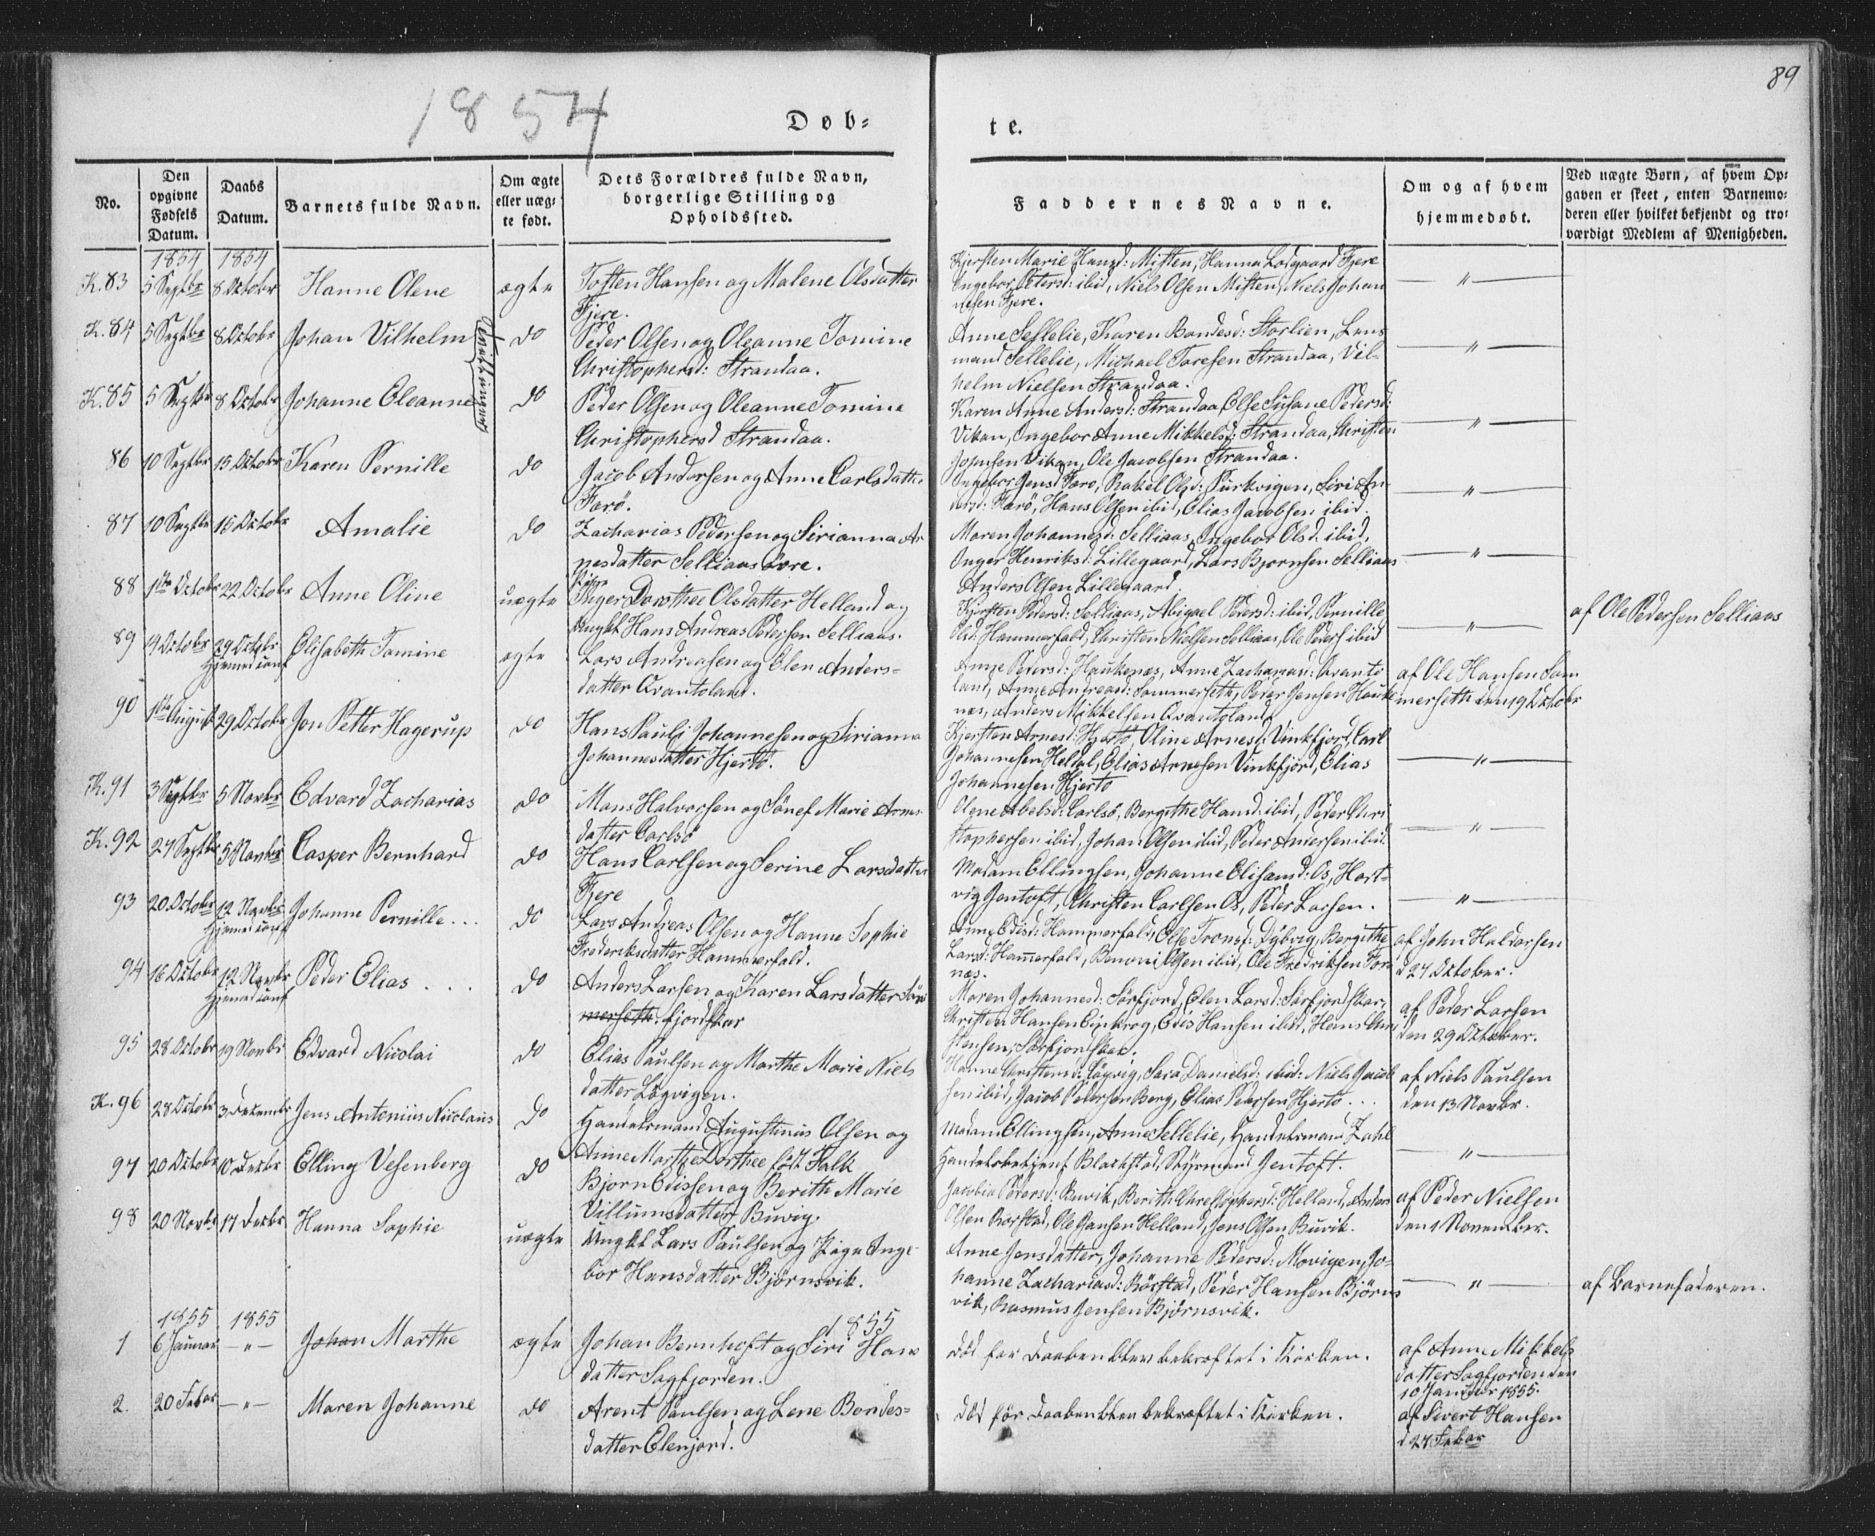 89
1854
Døb-
te.
No.
Den opgivne Fødsels Datum.
Daabs Datum.
Barnets fulde Navn.
Om ægte eller uægte født.
Dets Forældres fulde Navn, borgerlige Stilling og Opholdssted.
Faddernes Navne.
Om og af hvem hjemmedøbt.
Ved uægte Børn, af hvem Opgaven er skeet, enten Barnemoderen eller hvilket bekjendt og troværdigt Medlem af Menigheden.
1854 1854
K. 83 5 Septbr 8 Octobr Hanne Olene ægte Tosten Hansen og Malene Olsdatter
Fjere.
Kjersten Marie Hansd: Misten, Hanna Lodgaard Fjere
Ingebor Petersd: ibid, Niels Olsen Misten, Niels Johan
nesen Fjere.
— " —
K. 84 5 Septbr 8 Octobr Johan Vilhelm do Peder Olsen og Oleanne Tomine
Christophersd: Strandaa.
Tvillinger
Anne Sellelie, Karen Bondesd: Storlien, Lens
mand Sellelie, Michael Toresen Strandaa, Vil-
helm Nielsen Strandaa.
— " —
K. 85 5 Septbr 8 Octobr Johanne Oleanne do Peder Olsen og Oleanne Tomine
Christophersd Strandaa.
Karen Anne Andersd: Strandaa, Else Susane Pedersd:
Vikan, Ingebor Anne Mikkelsd: Strandaa, Christen
Vikan, Ole Jacobsen Strandaa.
— " —
86 10 Septbr 15 Octobr Karen Pernille do Jacob Andersen og Anne Carlsdatter
Farø.
Ingebor Jensd Farø, Rakel Olsd: Purkvigen, Siri An-
dersd: Farø, Hans Olsen ibid, Elias Jacobsen ibid.
— " —
87 10 Septbr 15 Octobr Amalie do Zacharias Pedersen og Sirianna Ar
nesdatter Selliaas øvre.
Maren Johannesd: Selliaas, Ingebor Olsd: ibid,
Inger Henriksd: Lillegaard, Lars Bjørnsen Selliaas
Anders Olsen Lillegaard.
— " —
88 1ste Octobr 22 Octobr Anne Oline uægte Pigen
Inger Dorothee Olsdatter Helland og
Ungkl Hans Andreas Pedersen Selliaas.
Kjersten Pedersd: Selliaas, Abigael Pedersd: ibid, Pernille
Olsd: Hammerfald, Christen Nielsen Selliaas, Ole Peders ibid
— " —
af Ole Pedersen Selliaas
89 19 Octobr 29 Octobr Elisabeth Tomine ægte Lars Andreasen og Elen Anders-
Hjemmed conf
datter Qvantoland.
Anne Pedersd: Haukenes, Anne Zachariasd: Qvanto
land, Anne Andreasd: Sommerseth, Peder Jensen Hauke
nes, Anders Mikkelsen Qvantoland
af Ole Hansen Som
merseth den 19 Octobr
90 1ste August 29 Octobr Jon Petter Hagerup do Hans Pauli Johannesen og Sirianna
Johannesdatter Hjertø.
Kjersten Arnesd: Hjertø, Oline Arnesd: Vinkfjord, Carl
Johannesen Heldal, Elias Arnesen Vinkfjord, Elias
Johannesen Hjertø
— " —
K. 91 3 Septbr 5 Novbr Edvard Zacharias do Mons Halvorsen og Sønef Marie Arns
datter Carlsø
Olene Abelsd: Carlsø, Bergithe Hansd: ibid, Peder Chri
stophersen ibid, Johan Olsen ibid, Peder Andersen ibid.
— " —
K. 92 27 Septbr 5 Novbr Casper Bernhard do Hans Carlsen og Serine Larsdatter
Fjere
Madam Ellingsen, Johanne Eliseand: Os, Hart-
vig Jentoft, Christen Carlsen Os, Peder Larsen.
— " —
93 20 Octobr 12 Novbr Johanne Pernille... do Lars Andreas Olsen og Hanne Sophie
Hjemmed conf
Frederiksdatter Hammerfald.
Anne Edisd: Hammerfald, Else Tronsd: Dybvig, Bergithe
Larsd: Hammerfald, Benoni Olsen ibid, Ole Fredriksen Torv
nes.
af John Haldorsen
d 27 October.
94 16 Octobr 12 Novbr Peder Elias ... do Anders Larsen og Karen Larsdatter Sør
Hjemmed conf
merseth. fjordskar
Maren Johannesd: Sørfjord, Elen Larsd: Sørfjordskar,
Christen Hansen, Edis Hansen ibid, Hans Chri
stensen, Sørfjordskar.
af Peder Larsen
den 29 October.
95 28 Octobr 19 Novbr Edvard Nicolai do Elias Paulsen og Marthe Marie Niels
datter Løgvigen.
Hanne Christensd: Løgvig, Sara Danielsd: ibid: Niels Jacob
sen ibid, Jacob Pedersen Berg, Elias Pedersen Hjertø...
af Niels Paulsen
den 13 Novbr.
K. 96 28 Octobr 3 Decembr Jens Antonius Nicolaus do Handelsmand Augustinus Olsen og
Anne Marthe Dorthee født Falk
Madam Ellingsen, Anne Sellelie, Handelsmand Zahl
Handelsbetjent Blackstad, Styrmand Jentoft.
— " —
97 20 Octobr 10 Decbr Elling Vesenberg do Bjørn Edissen og Berith Marie
Villumsdatter Buvig.
Jacobia Pedersd: Buvik, Berith Christophersd: Helland, Anders
Olsen Børstad, Ole Hansen Helland, Jens Olsen Buvik.
af Peder Nielsen
den 1 November.
98 20 Novbr 17 Decbr Hanna Sophie uægte Ungkl Lars Paulsen og Pige Inge-
bor Hansdatter Bjørnsvik.
Anne Jensdatter, Johanne Pedersd: Movigen, Jo-
hanne Zachariasd: Børstad, Peder Hansen Bjørns
vik, Rasmus Jensen Bjørnsvik.
— " —
af Barnefaderen.
1855 1855 1855
1 6 Januar — " — Johan Marthe ægte Johan Bernhoft og Siri Hans
datter Sagfjorden.
død før Daaben blev bekræftet i Kirken.
af Anne Mikkels
datter Sagfjorden den
10 Januar 1855.
2. 20 Febar — " — Maren Johanne do Arent Paulsen og Lene Bondes-
datter Elenjord.
død før Daaben blev bekræftet i Kirken.
af Sivert Hansen
d 27 Febar